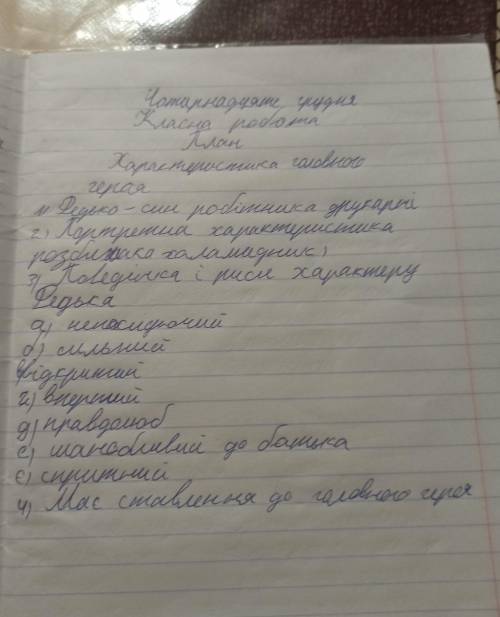 Чотирнадцяте грудня
Класна робота
План
Характеристика головного
героя
1) Федько - син робітника друкарні
2) Портретна характеристика
розбишака халамидник)
3) Поведінка і риси характеру
Федька
а)
б) сильний
в)відкритий
г) впертий
д) правдолюб
е) шанобливий до батька
є) спритний
4) Моє ставлення до головного героя